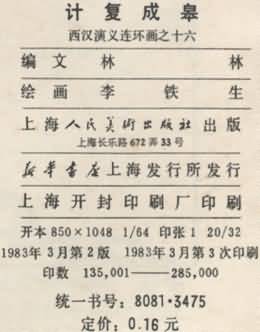 计复成皋
西汉演义连环画之十六
编文 林林
绘画 李铁生
上海人民美术出版社出版
上海长乐路672弄33号
新华书店上海发行所发行
上海开封印刷厂印刷
开本 850×1048 1/64 印张 1 20/32
1983年3月第2版 1983年3月第3次印刷
印数 135,001——285,000
统一书号：8081·3475
定价：0.16元